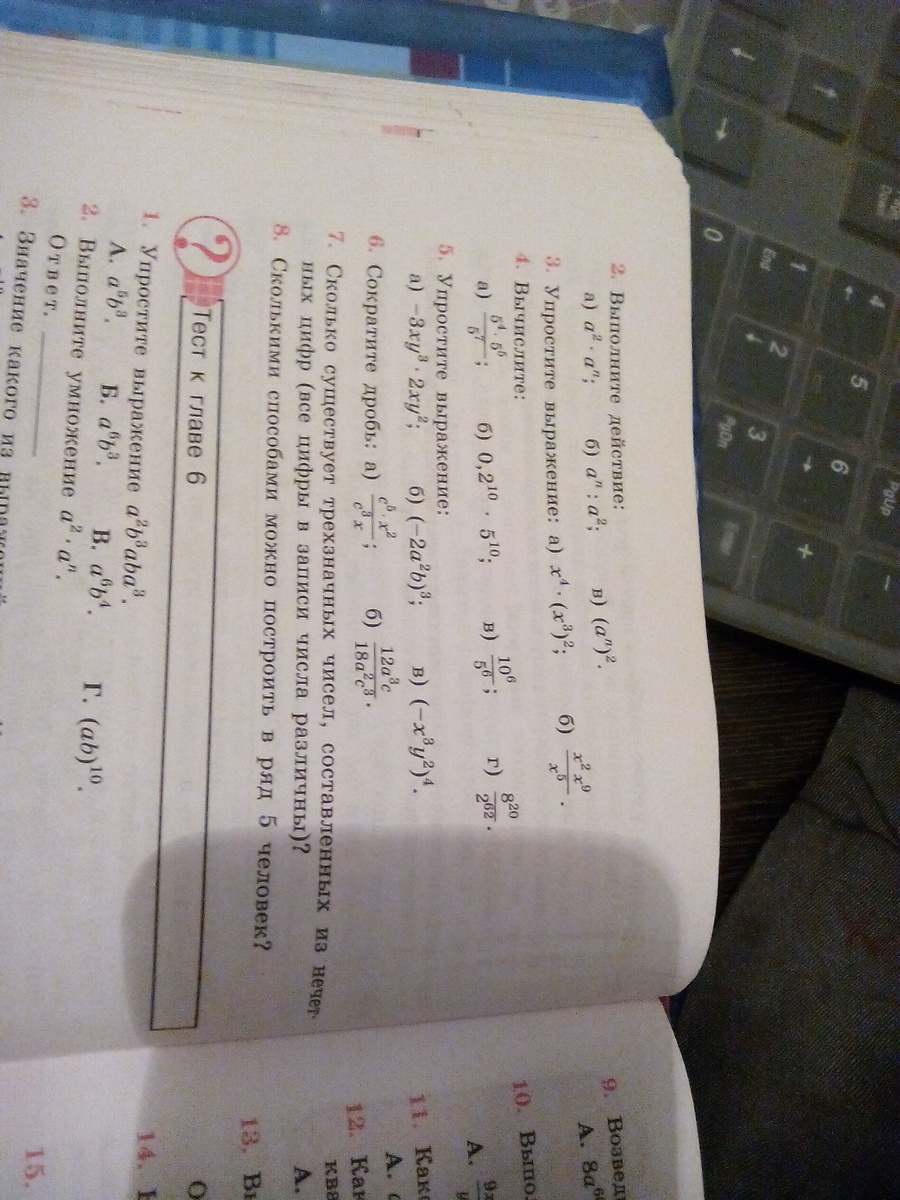 2. Выполните действие:
а) a² · aⁿ; б) aⁿ : a²; в) (aⁿ)².
3. Упростите выражение: а) x⁴ · (x³)²; б) x² x⁹ / x⁵.
4. Вычислите:
а) 5⁴ · 5⁵ / 5⁷; б) 0,2¹⁰ · 5¹⁰; в) 10⁶ / 5⁶; г) 8²⁰ / 2⁶².
5. Упростите выражение:
а) −3xy³ · 2xy²; б) (−2a²b)³; в) (−x³y²)⁴.
6. Сократите дробь: а) c⁵ · x² / c³x; б) 12a³c / 18a²c³.
7. Сколько существует трехзначных чисел, составленных из нечет-
ных цифр (все цифры в записи числа различны)?
8. Сколькими способами можно построить в ряд 5 человек?
? Тест к главе 6
1. Упростите выражение a²b³aba³.
А. a⁵b³. Б. a⁶b³. В. a⁶b⁴. Г. (ab)¹⁰.
2. Выполните умножение a² · aⁿ.
Ответ.
3. Значение какого из выражений
9. Возвед
А. 8a⁶
10. Выпо
А. 9
11. Как
А.
12. Как
ква
А.
13. В
О
14.
15.
0
1
End
2
3
PgDn
4
5
6
PgUp
+
−